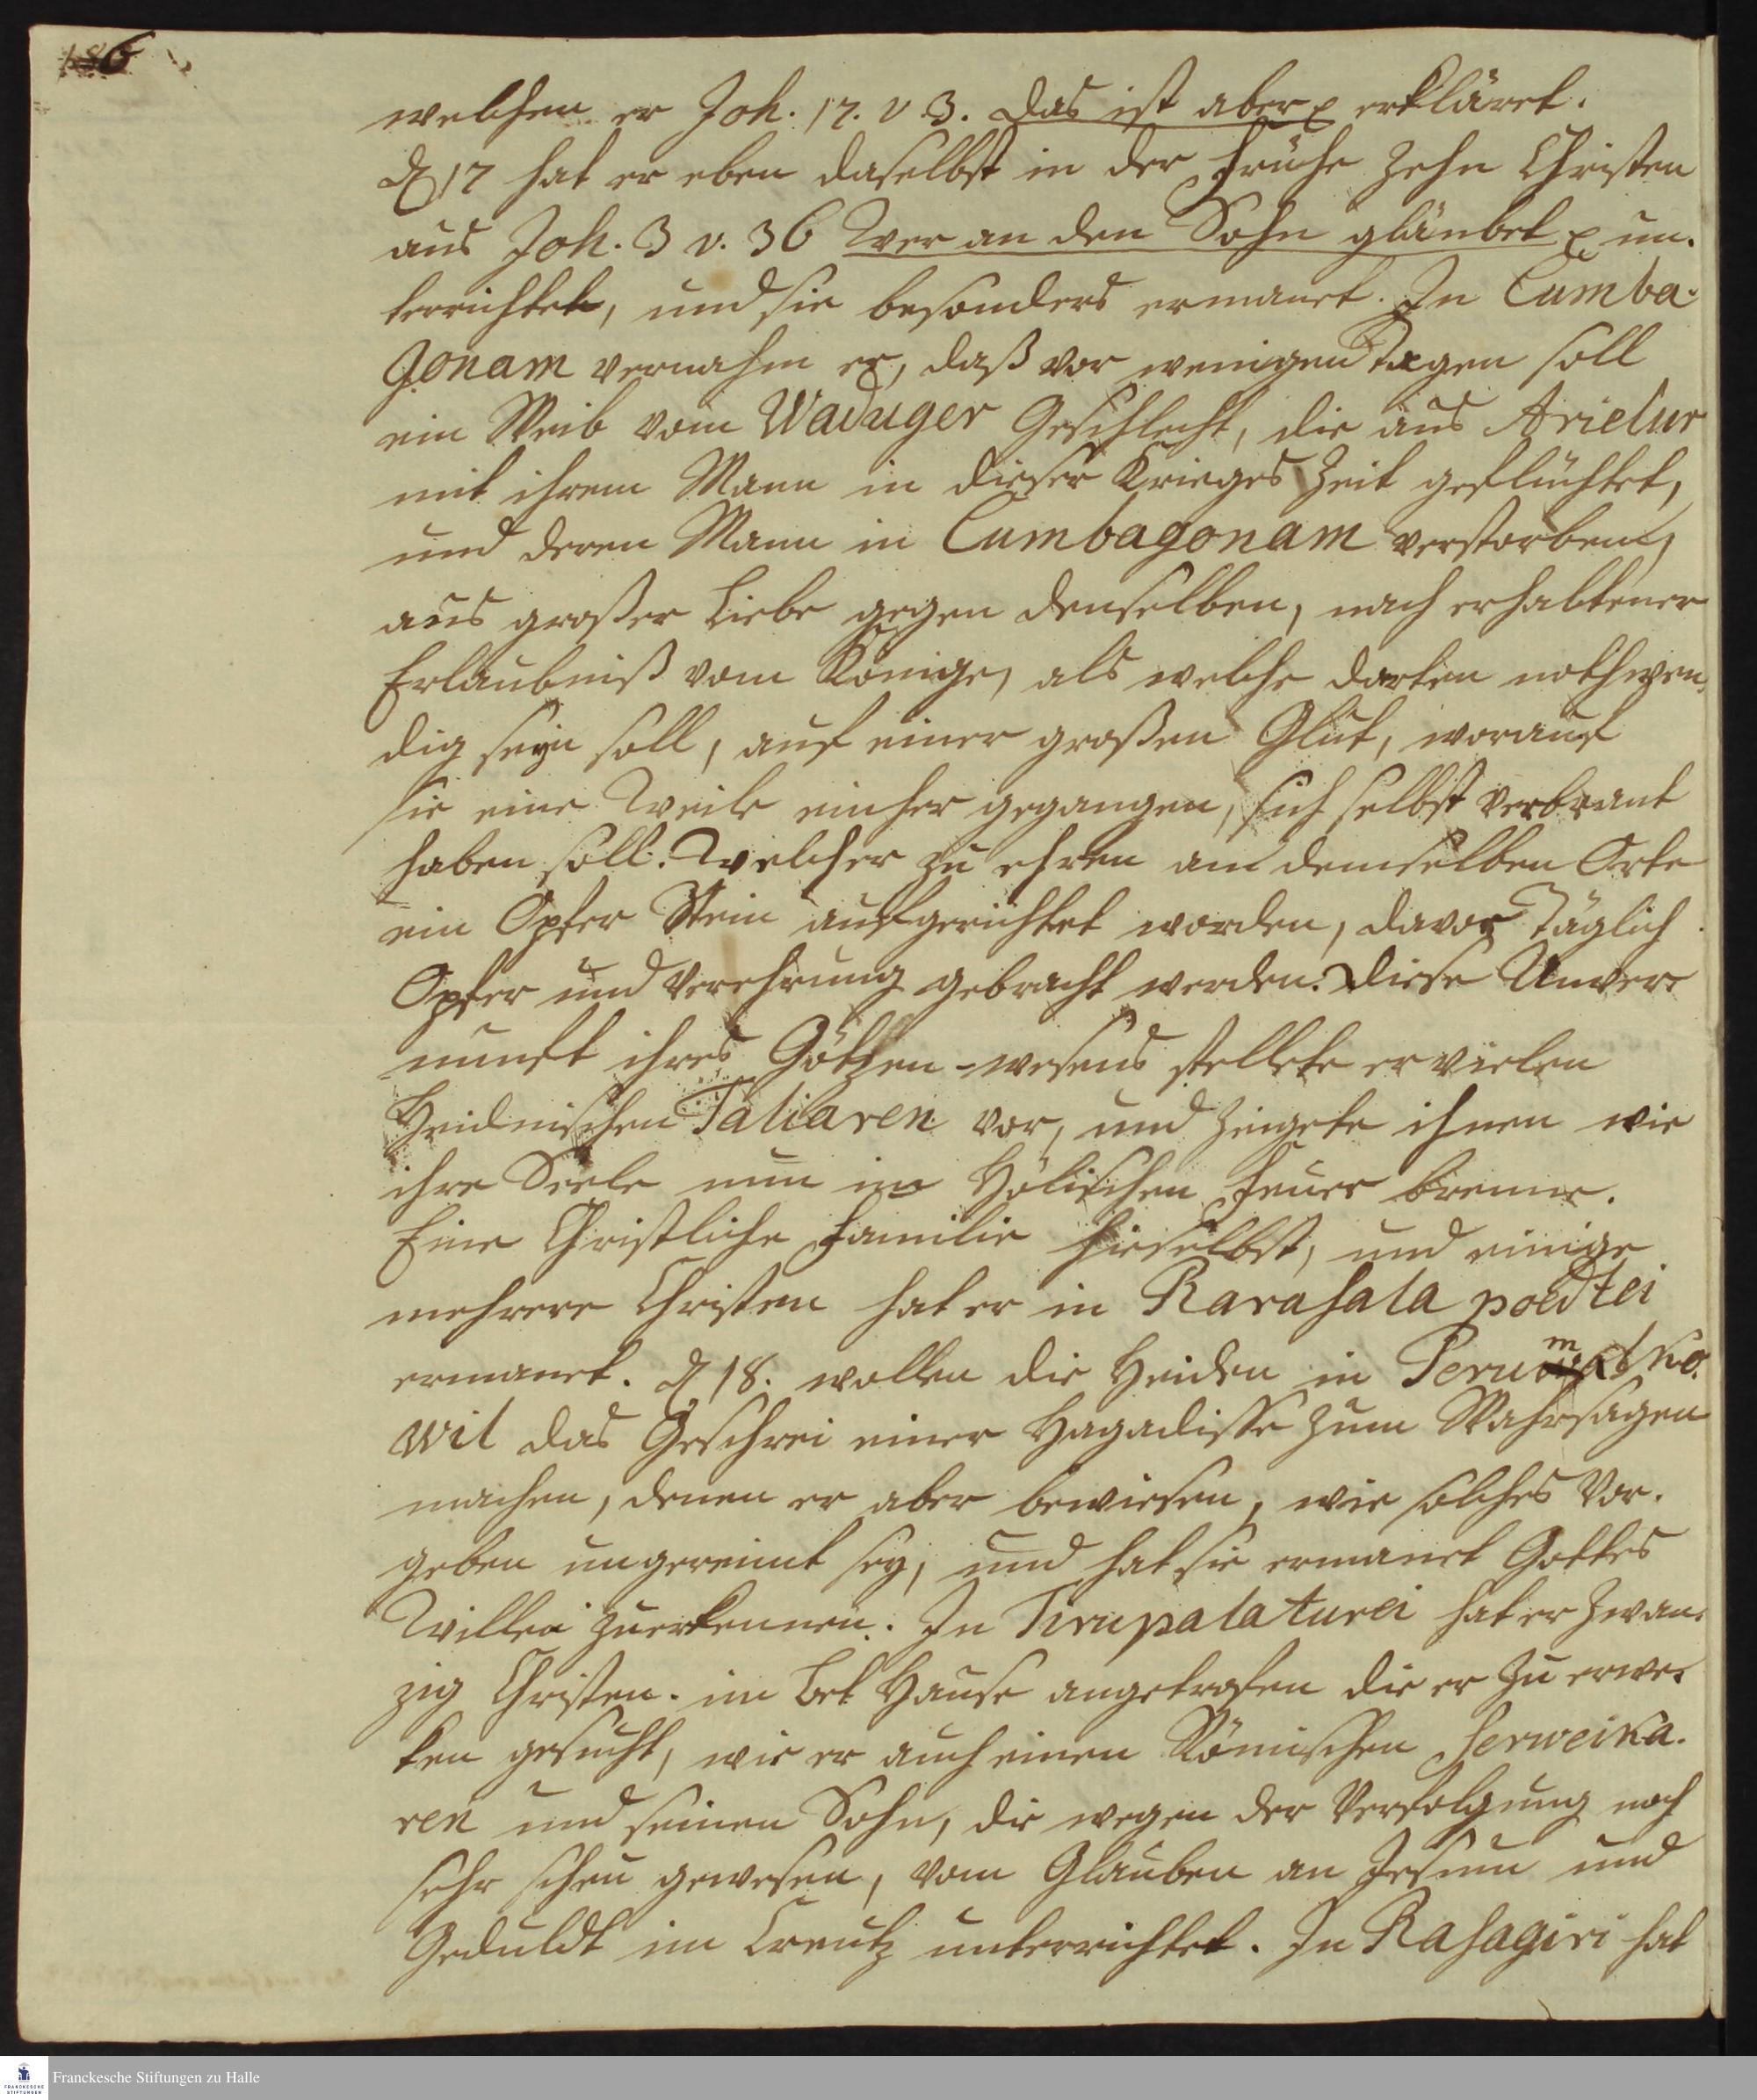 186
welchen er Joh. 17. v 3. das ist aber erkläret.
d 17 hat er eben daselbst in der frühe zehn Christen
aus Joh. 3 v. 36 Wer an den Sohn gläubet un-
terrichtet, und sie besonders ermanet. In Cumba-
gonam vernahm er, daß vor wenigen Tagen soll
ein Weib vom Waduger Geschlecht, die aus Arielur
mit ihrem Mann in dieser Krieges Zeit geflüchtet,
und deren Mann in Cumbagonam verstorben,
aus großer Liebe gegen denselben, nach erhaltener
Erlaubniß vom Könige, als welche darten nothwen-
dig seyn soll, auf einer großen Glut, worauf
sie eine Weile einher gegangen, sich selbst verbrant
haben soll. Welcher zu ehren an demselben Orte
ein Opfer Stein aufgerichtet worden, davor täglich
Opfer und Verehrung gebracht werden. Diese Unver-
nunft ihres Götzen-wesens stellete er vielen
Heidnischen Taliaren vor, und zeigete ihnen wie
ihre Seele nun im Hölischen feuer brenne.
Eine Christliche Familie hieselbst, und einige
mehrere Christen hat er in Rarasala poedtei
ermanet. d 18. wollen die Heiden in Perumalko-
wil das Geschrei einer Hagadisse zum Wahrsagen
machen, denen er aber bewiesen, wie solches Vor-
geben ungereimt sey, und hat sie ermanet Gottes
Willen zuerkennen. In Tirupalaturei hat er zwan-
zig Christen im Bet Hause angetrofen die er zu erwe-
ken gesucht, wie er auch einen Römischen Serweika-
ren und seinen Sohn, die wegen der Verfolgung noch
sehr scheu gewesen, vom Glauben an Jesum und
Geduldt im Creutz unterrichtet. In Rasagiri hat
FRANCKESCHE
STIFTUNGEN
Franckesche Stiftungen zu Halle